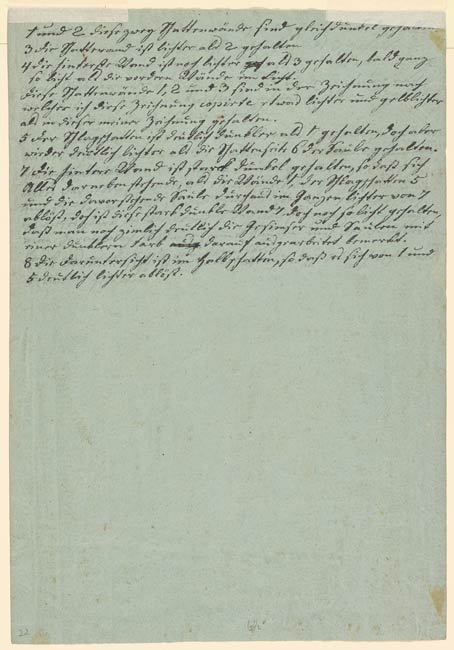 1 und 2 diese zwey Schattenwände sind gleich dunkel gehalten
3 die Schattewand ist lichter als 2 gehalten
4 die hinterste Wand ist noch lichter als 3 gehalten, bald ganz
so licht als die vordern Wände im Licht.
diese Schattenwände 1, 2 und 3 sind in der Zeichnung nach
welcher ich diese Zeichnung copierte etwas lichter und gelblichter
als in dieser meiner Zeichnung gehalten.
5 der Schlagschatten ist deutlich dunkler als 1 gehalten, doch aber
wieder deutlich lichter als die Schattenseite 6 der Säule gehalten.
7 die hintere Wand ist stark dunkel gehalten, so daß sich
Alles daneben stehende, als die Wände 1, der Schlagschatten 5
und die davorstehende Säule durchaus im Ganzen lichter von 7
ablöst. doch ist diese stark dunkle Wand 7 doch noch so licht gehalten,
daß man noch ziemlich deutlich die Gesimser und Säulen mit
einer dunklern Farb darauf ausgearbeitet bemerkt.
8 die Daruntersicht ist im Halbschatten, so daß es sich von 1 und
5 deutlich lichter ablöst.
22